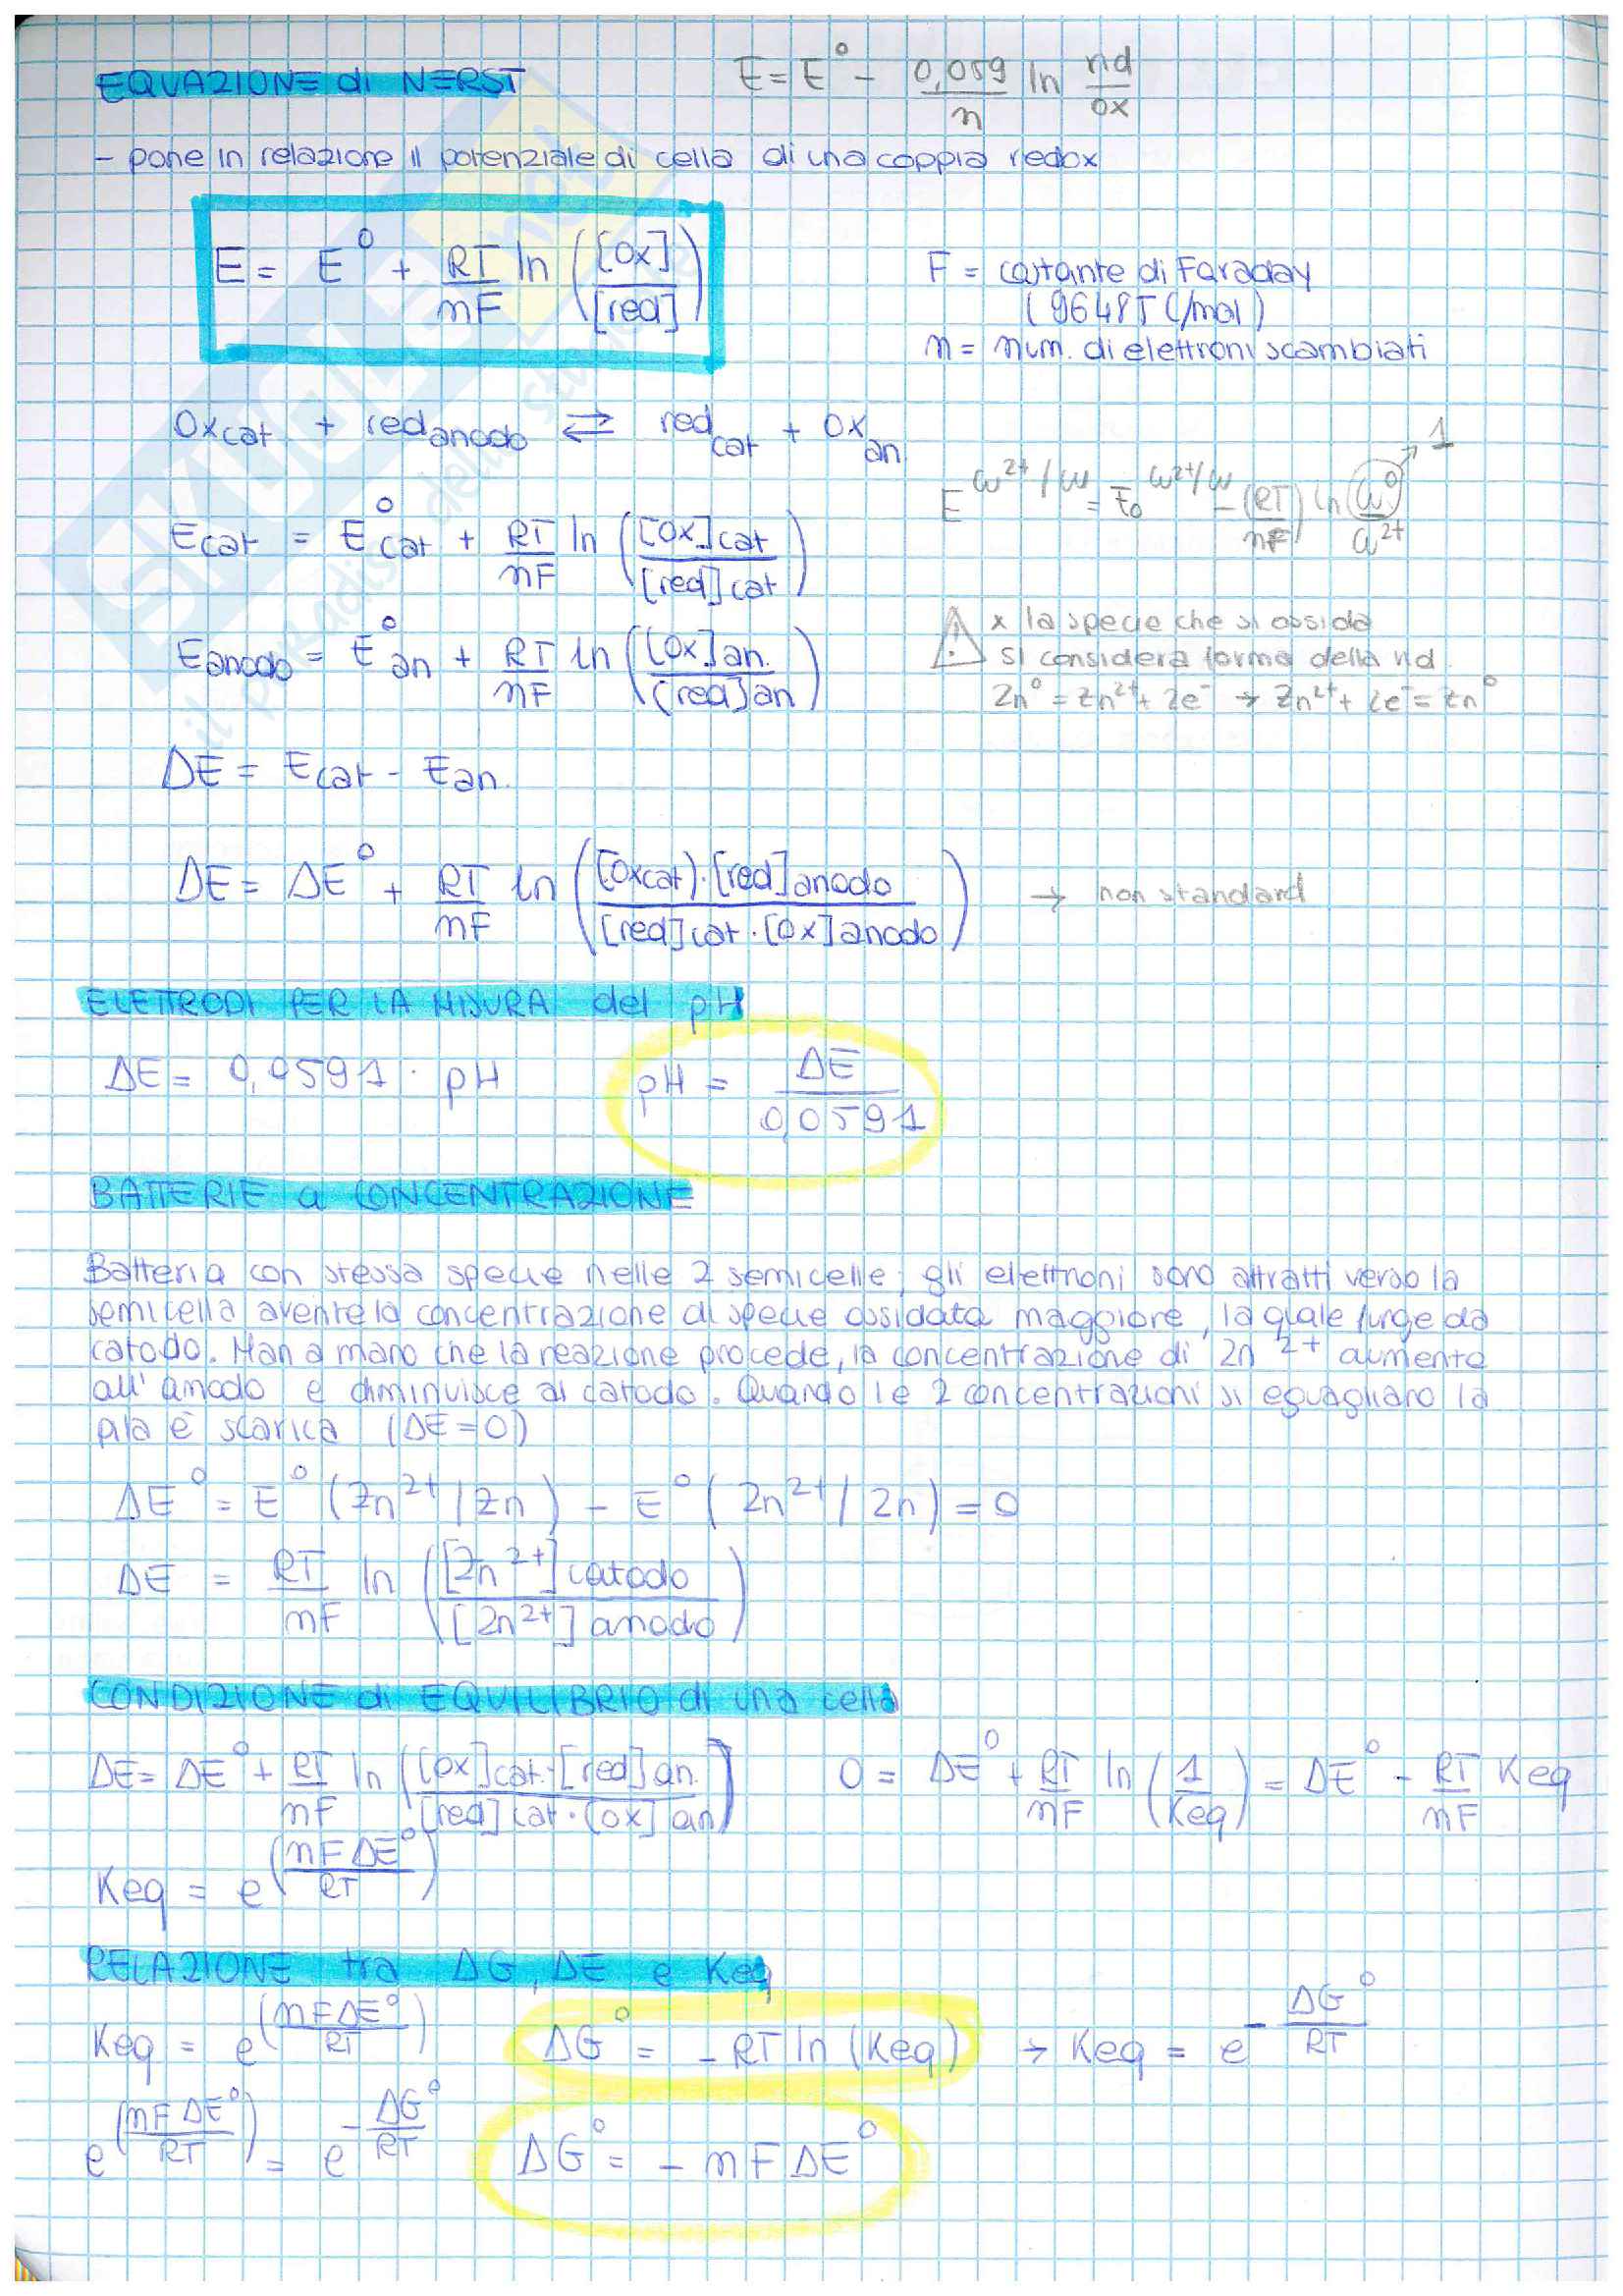 EQUAZIONE di NERST
E = E° - 0,059/n ln rid/ox
- pone in relazione il potenziale di cella di una coppia redox
E = E° + RT/nF ln ([Ox]/[red])
F = costante di Faraday
(96485 C/mol)
n = num. di elettroni scambiati
Oxcat + redanodo ⇄ redcat + Oxan
E Cu²⁺/Cu = E₀ Cu²⁺/Cu - (RT/nF) ln Cu⁰/Cu²⁺ → 1
Ecat = E°cat + RT/nF ln ([Ox]cat/[red]cat)
Eanodo = E°an + RT/nF ln ([Ox]an./[red]an)
⚠ x la specie che si ossida
si considera forma della rid.
Zn⁰ = Zn²⁺ + 2e⁻ → Zn²⁺ + 2e⁻ = Zn⁰
ΔE = Ecat - Ean.
ΔE = ΔE° + RT/nF ln ([Oxcat)·[red]anodo/[red]cat·[Ox]anodo) → non standard
ELETTRODI PER LA MISURA del pH
ΔE = 0,0591 · pH
pH = ΔE/0,0591
BATTERIE a CONCENTRAZIONE
Batteria con stessa specie nelle 2 semicelle; gli elettroni sono attratti verso la
semicella avente la concentrazione di specie ossidata maggiore, la quale funge da
catodo. Man a mano che la reazione procede, la concentrazione di Zn²⁺ aumenta
all'anodo e diminuisce al catodo. Quando le 2 concentrazioni si eguagliano la
pila è scarica (ΔE=0)
ΔE° = E° (Zn²⁺/Zn) - E° (Zn²⁺/Zn) = 0
ΔE = RT/nF ln ([Zn²⁺]catodo/[Zn²⁺]anodo)
CONDIZIONE di EQUILIBRIO di una cella
ΔE = ΔE° + RT/nF ln ([ox]cat.·[red]an./[red]cat·[ox]an)
0 = ΔE° + RT/nF ln (1/Keq) = ΔE° - RT/nF Keq
Keq = e^(nFΔE°/RT)
RELAZIONE tra ΔG, ΔE e Keq
Keq = e^(nFΔE°/RT)
ΔG° = -RT ln (Keq) → Keq = e^-ΔG°/RT
e^(nFΔE°/RT) = e^-ΔG°/RT
ΔG° = - nFΔE°